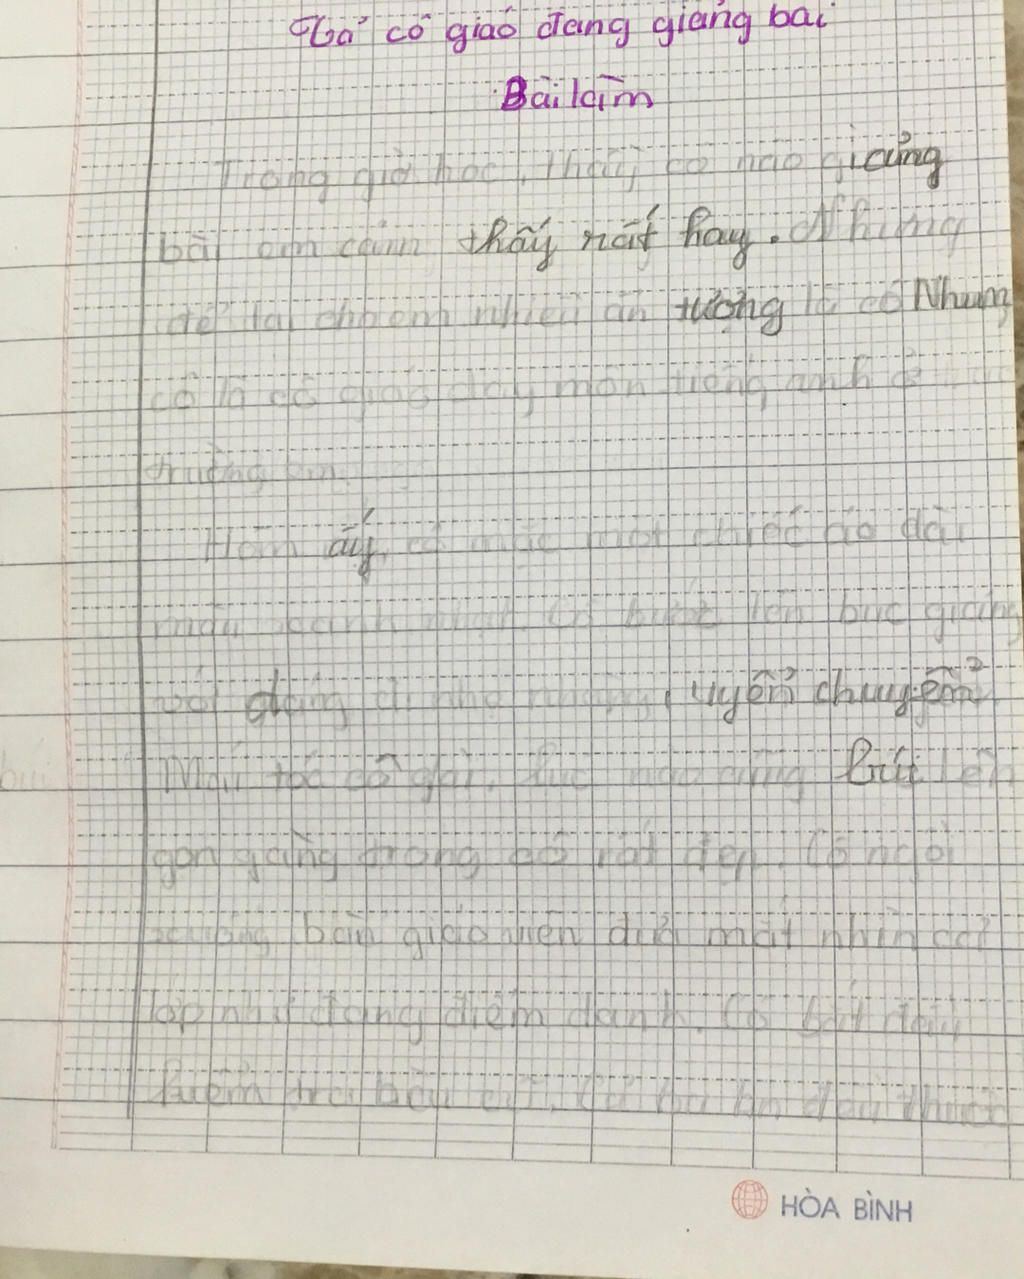 Tả cô giáo đang giảng bài
Bài làm
Trong giờ học, thầy cô nào giảng
bài em cảm thấy rất hay. Nhưng
để lại cho em nhiều ấn tượng là cô Nhung
cô là cô giáo dạy môn tiếng anh ở
trường em.
Hôm ấy, cô mặc một chiếc áo dài
màu xanh nhạt. Cô bước lên bục giảng
với dáng đi nhẹ nhàng, uyển chuyển
Mái tóc cô dài, lúc nào cũng búi lên
gọn gàng trong cô rất đẹp. Cô ngồi
xuống bàn giáo viên đưa mắt nhìn cả
lớp như đang điểm danh. Cô bắt đầu
kiểm tra bài cũ.
HÒA BÌNH